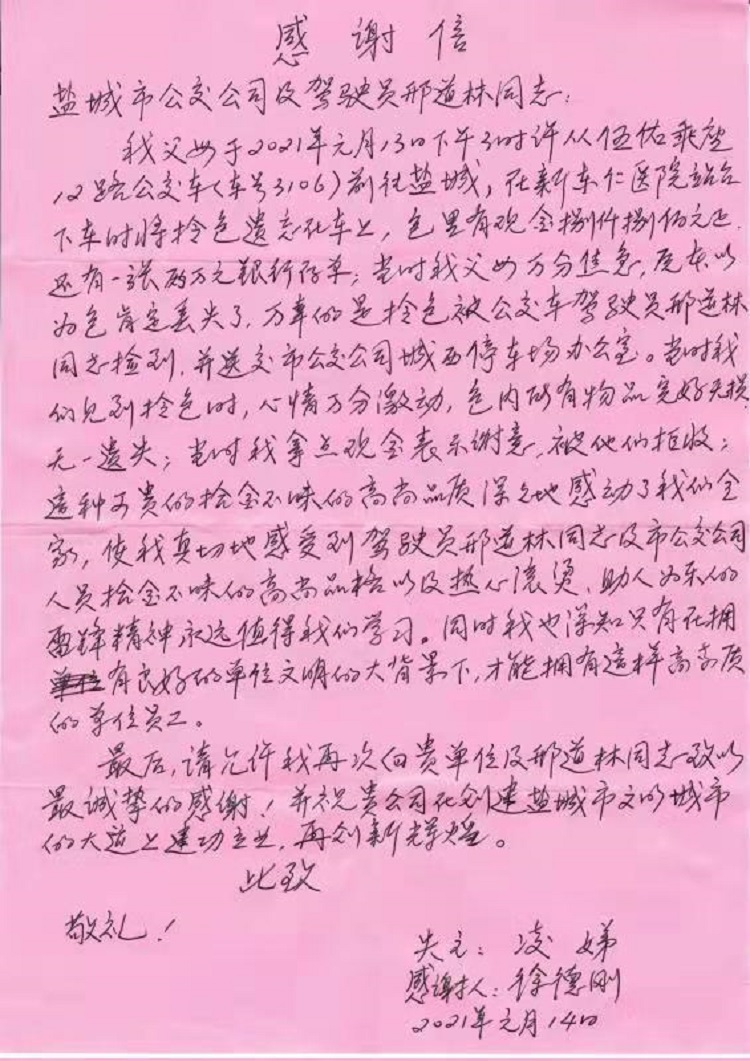 感谢信
盐城市公交公司及驾驶员邢道林同志:
我父母于2021年元月13日下午3时许从伍佑乘座
12路公交车(车号3106)前往盐城,在新东仁医院站台
下车时将拎包遗忘在车上,包里有现金捌仟捌佰元正.
还有一张两万元银行存单;当时我父母万分焦急,原本以
为包肯定丢失了,万幸的是拎包被公交车驾驶员邢道林
同志捡到,并送交市公交公司城西停车场办公室。当时我
们见到拎包时,心情万分激动,包内所有物品完好无损
无一遗失;当时我拿点现金表示谢意,被他们拒收;
这种可贵的拾金不昧的高尚品质深深地感动了我们全
家,使我真切地感受到驾驶员邢道林同志及市公交公司
人员拾金不昧的高尚品格以及热心滚烫、助人为乐的
雷锋精神永远值得我们学习。同时我也深知只有在拥
有良好的单位文明的大背景下,才能拥有这样高素质
的单位员工。
最后,请允许我再次向贵单位及邢道林同志致以
最诚挚的感谢!并祝贵公司在创建盐城市文明城市
的大道上建功立业,再创新辉煌。
此致
敬礼!
失主:凌娣
感谢人:徐德刚
2021年元月14日